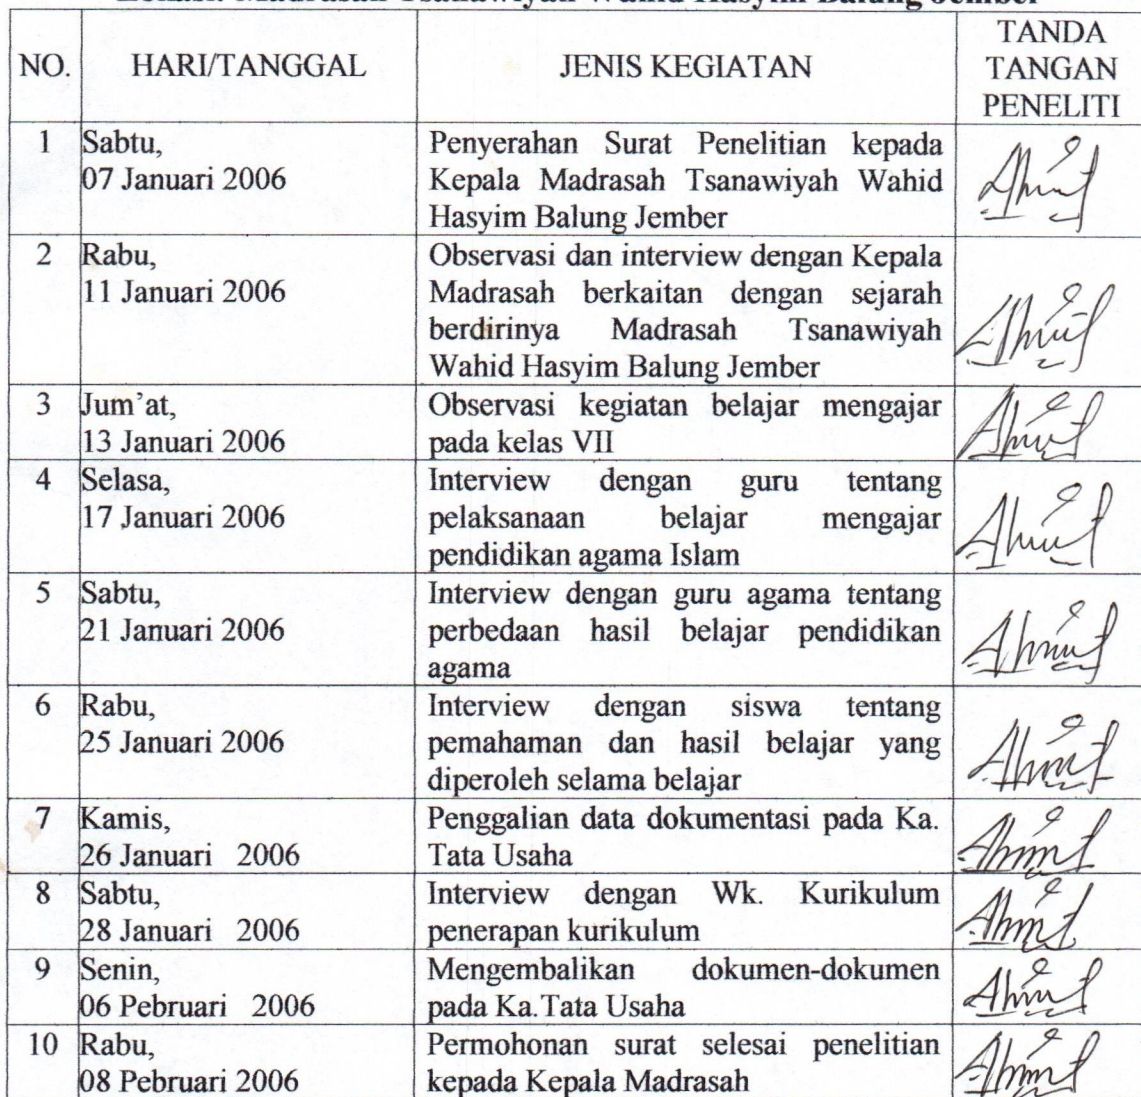 Lokasi: Madrasah Tsanawiyah Wahid Hasyim Balung Jember
NO.
HARI/TANGGAL
JENIS KEGIATAN
TANDA
TANGAN
PENELITI
1
Sabtu,
07 Januari 2006
Penyerahan Surat Penelitian kepada
Kepala Madrasah Tsanawiyah Wahid
Hasyim Balung Jember
2
Rabu,
11 Januari 2006
Observasi dan interview dengan Kepala
Madrasah berkaitan dengan sejarah
berdirinya Madrasah Tsanawiyah
Wahid Hasyim Balung Jember
3
Jum’at,
13 Januari 2006
Observasi kegiatan belajar mengajar
pada kelas VII
4
Selasa,
17 Januari 2006
Interview dengan guru tentang
pelaksanaan belajar mengajar
pendidikan agama Islam
5
Sabtu,
21 Januari 2006
Interview dengan guru agama tentang
perbedaan hasil belajar pendidikan
agama
6
Rabu,
25 Januari 2006
Interview dengan siswa tentang
pemahaman dan hasil belajar yang
diperoleh selama belajar
7
Kamis,
26 Januari 2006
Penggalian data dokumentasi pada Ka.
Tata Usaha
8
Sabtu,
28 Januari 2006
Interview dengan Wk. Kurikulum
penerapan kurikulum
9
Senin,
06 Pebruari 2006
Mengembalikan dokumen-dokumen
pada Ka.Tata Usaha
10
Rabu,
08 Pebruari 2006
Permohonan surat selesai penelitian
kepada Kepala Madrasah